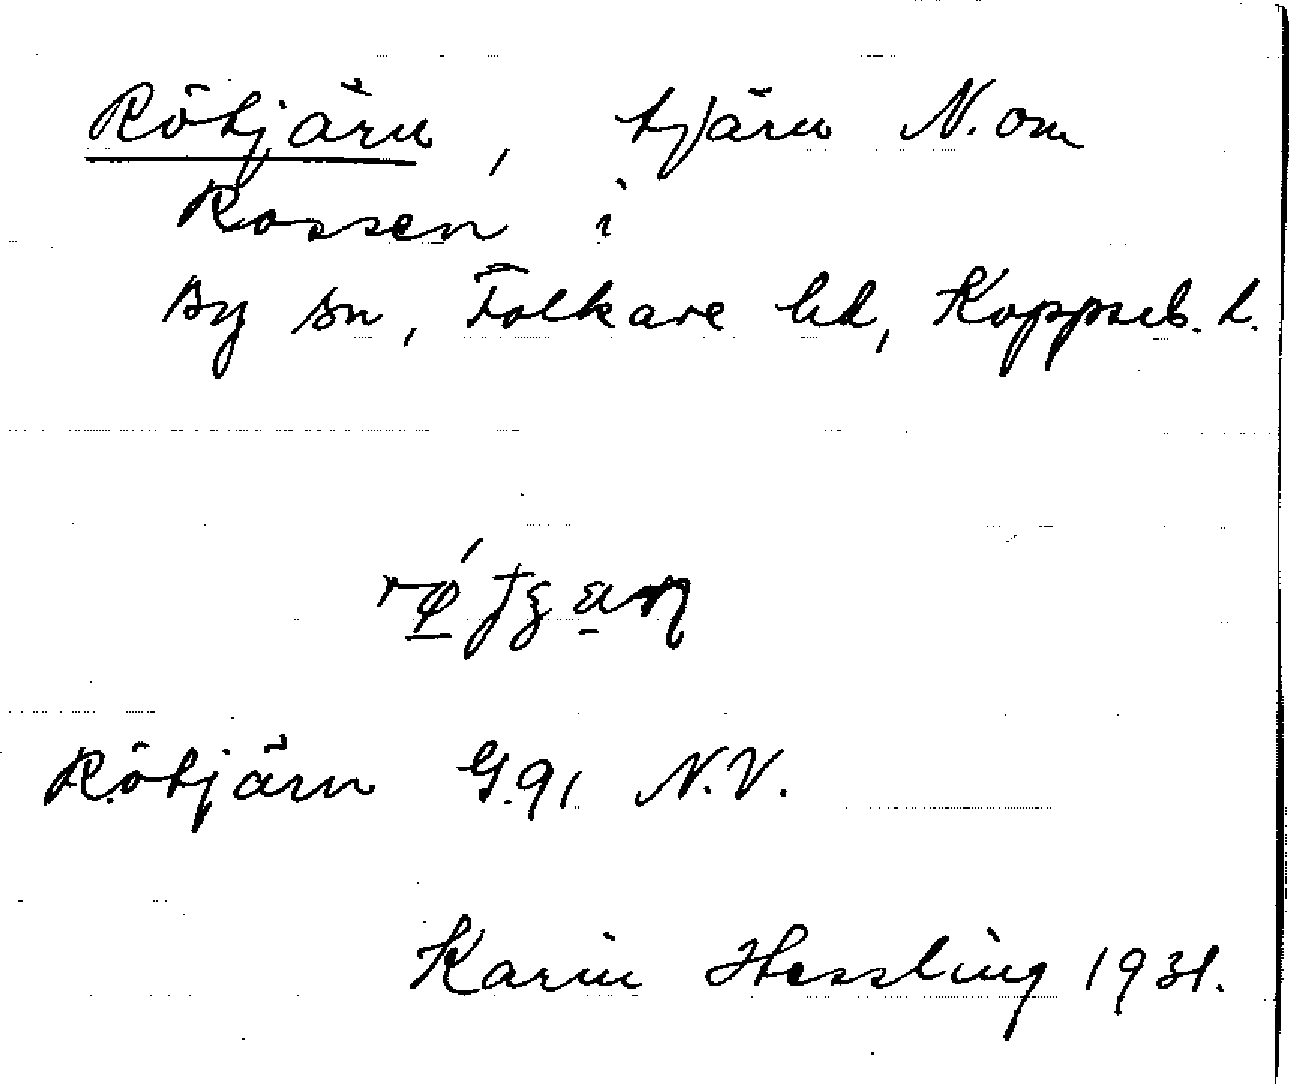 Rötjärn, tjärn N. om
Rossen i
By sn, Folkare hd, Kopparb. l.
Rötjärn G.91 N.V.
Karin Hessling 1931.